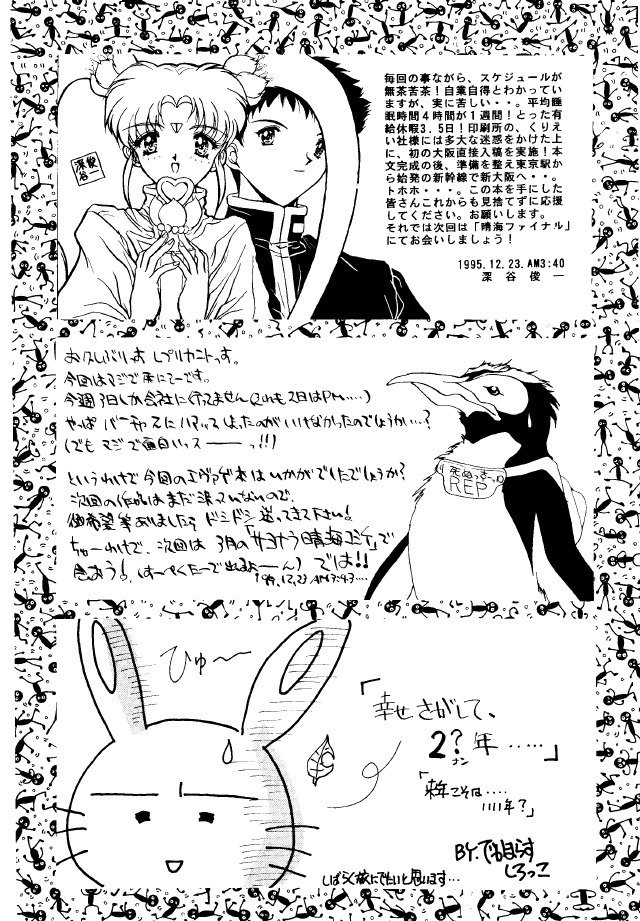 毎回の事ながら、スケジュールが
無茶苦茶！自業自得とわかってい
ますが、実に苦しい・・。平均睡
眠時間４時間が１週間！とった有
給休暇３.５日！印刷所の、くりえ
い社様には多大な迷惑をかけた上
に、初の大阪直接入稿を実施！本
文完成の後、準備を整え東京駅か
ら始発の新幹線で新大阪へ・・。
トホホ・・・。この本を手にした
皆さんこれからも見捨てずに応援
してください。お願いします。
それでは次回は「晴海ファイナル」
にてお会いしましょう！
1995.12.23.AM3:40
深谷俊一
お久しぶりっす レプリカントっす。
今回はマジで死にてーです。
今週3日しか会社に行ってません(それも2日はPM....)
やっぱ バーチャ2にハマってしまったのがいけなかったのでしょうか…?
(でも マジで面白いッスーーーっ!!)
というわけで今回のエヴァゲ本はいかがでしたでしょうか?
次回の作品はまだ決っていないので、
御希望等ありましたら ドシドシ送ってきて下さい!
ちゅーわけで、次回は 3月の「サヨナラ晴海コミケ」で
会おう!
では!!
死ぬっすっ
REP
ひゅ〜〜
「幸せ さがして、
2?年……」
ナン
「来年こそは….
1111年?」
BY.でるまらす
しろっこ
しばらく旅にでたいと思います…